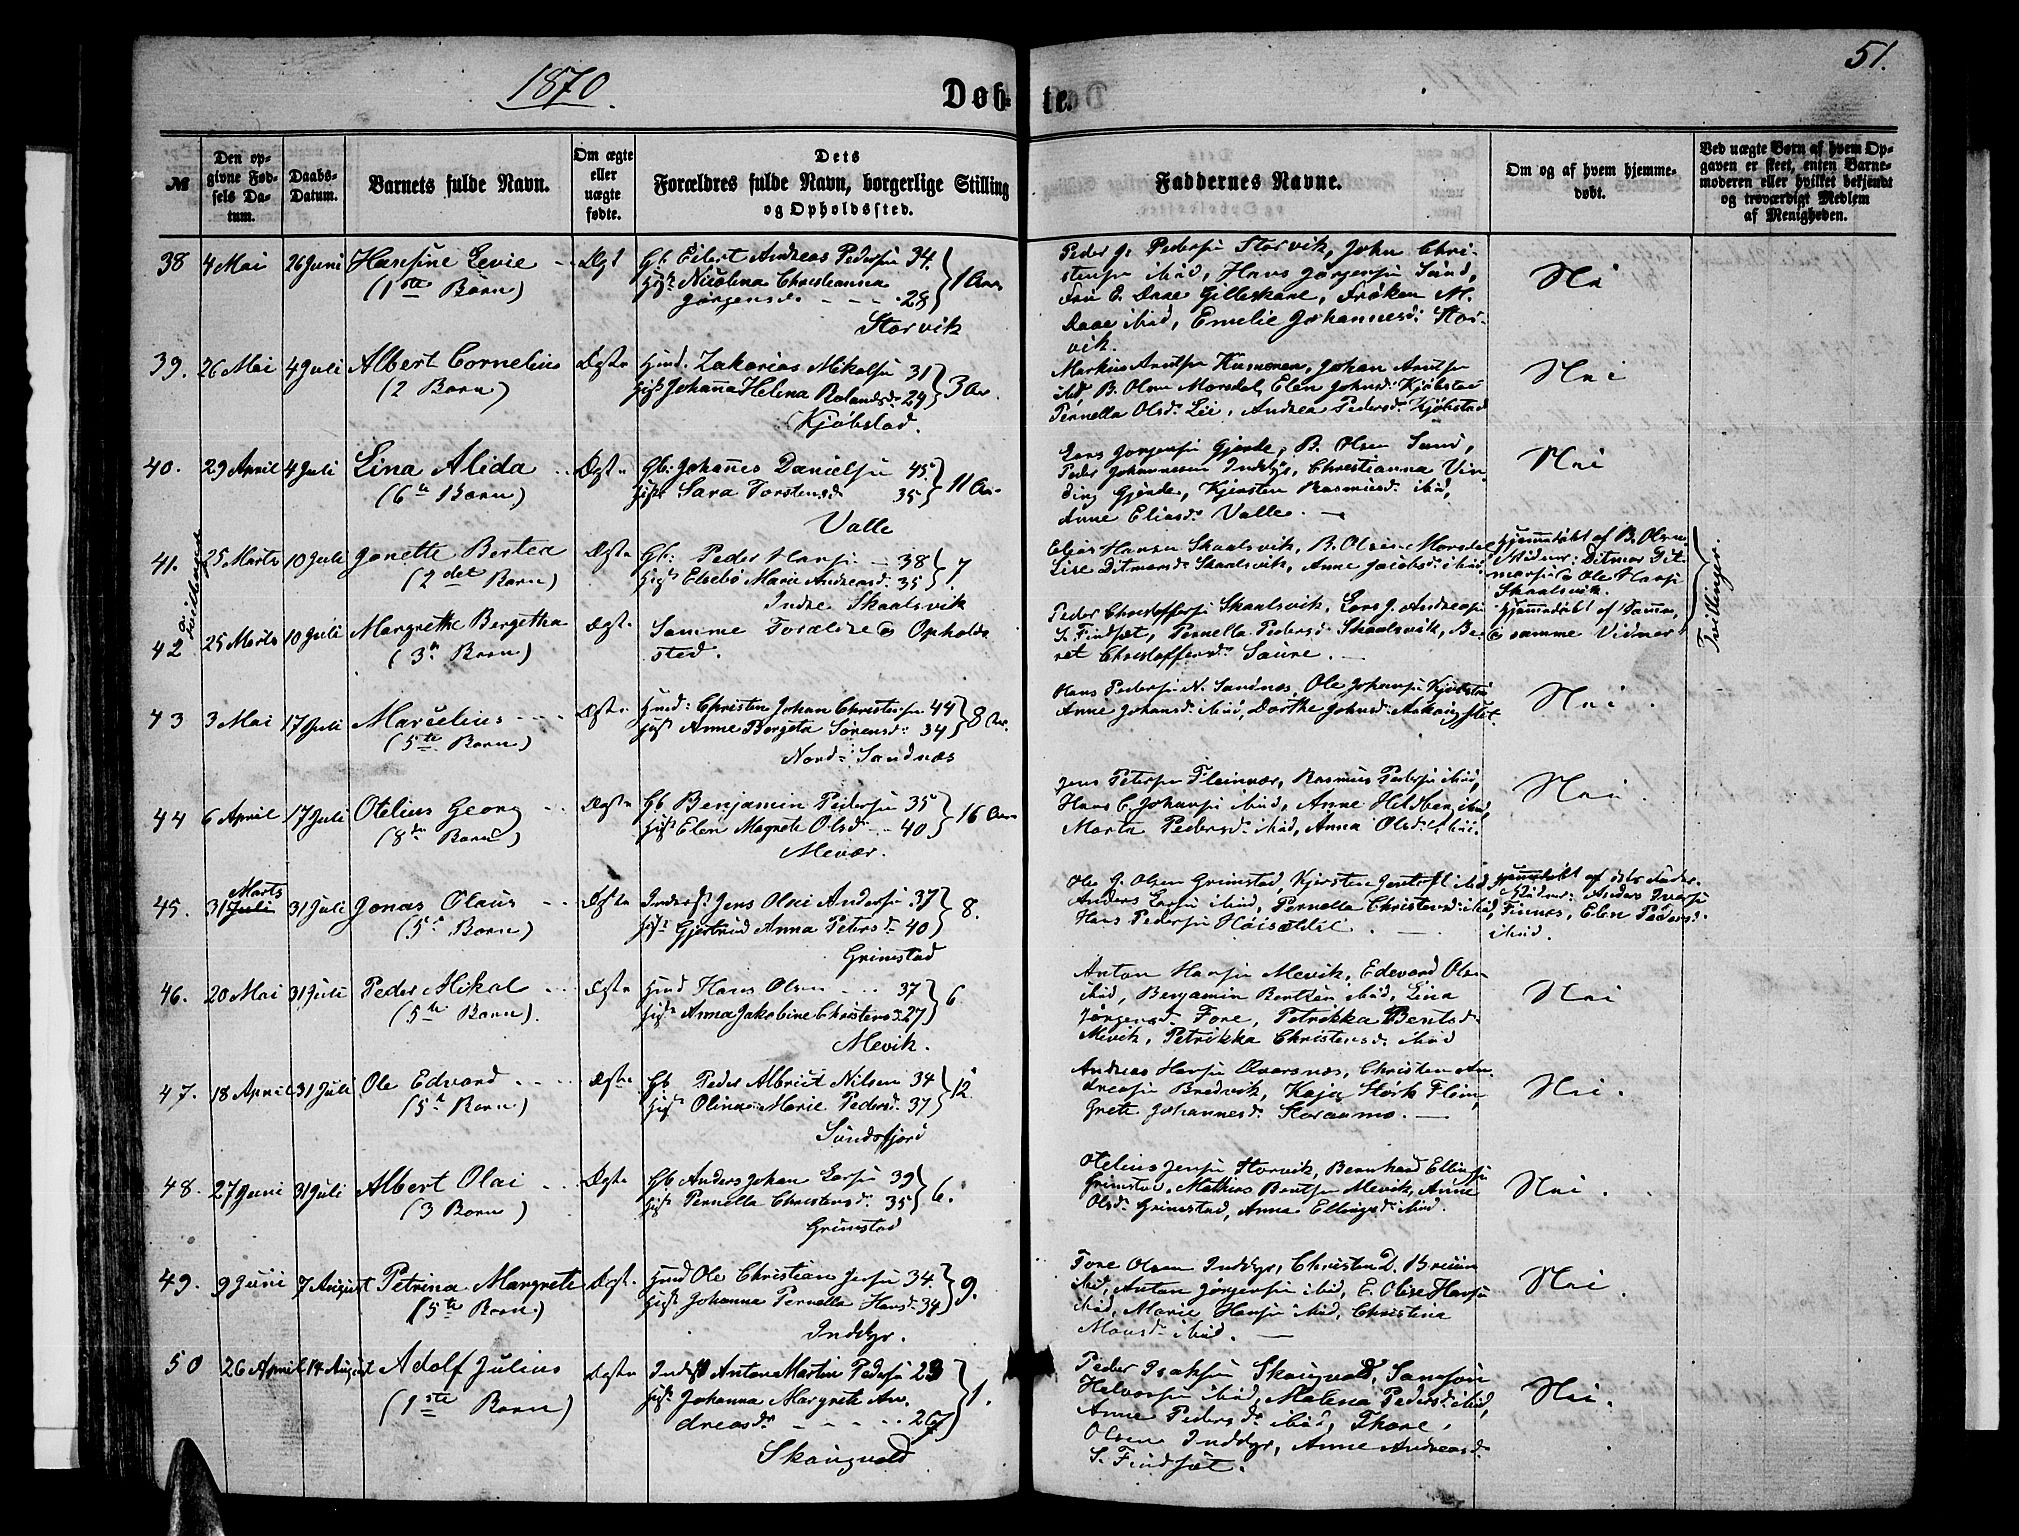 1870.
Døb-
te.
51.
№
Den op-
givne Fød-
sels Da-
tum.
Daabs-
Datum.
Barnets fulde Navn.
Om ægte
eller
uægte
fødte.
Dets
Forældres fulde Navn, borgerlige Stilling
og Opholdssted.
Faddernes Navne.
Om og af hvem hjemme-
døbt.
Ved uægte Børn af hvem Op-
gaven er skeet, enten Barne-
moderen eller hvilket bekjendt
og troværdigt Medlem
af Menigheden.
38 4 Mai 26 Juni Hansine Levie
(1ste Barn)
Gb. Eilert Andreas Pedersen 34.
Nicolina Christianna
Jørgensd. 28
Storvik
Peder J. Pedersen Storvik, John Chri-
stensen ibid, Hans Jørgensen Sund,
Fru E. Daae Gilleskaal, Frøken M.
Daae ibid, Emelie Johannesd. Stor-
vik.
Nei
39. 26 Mai 4 Juli Albert Cornelius
(2 Barn)
Ægte
Huusm. Zakarias Mikalsen 31
Johanna Helena Rolandsd. 29 3 Aar
Kjøbstad.
Johan Arntsen
ibid, B. Olsen Morsdal, Elen Johnsd. Kjøbstad
Pernella Olsd. Lii, Andrea Pedersd. Kjøbstad
Nei
40. 29 April 4 Juli Lina Alida
(6te Barn)
Ægte
Gb. Johanes Danielsen 45
Sara Torstensd. 35 11 Aar
Valle
Lars Jørgensen Gjerde, B. Olsen Sund,
Peder Johannesen Inddyr, Christianna Vin-
ding Gjerde, Kjersten Rasmusd. ibid,
Anne Eliasd. Valle.
Nei
Tvillinger
41. 25 Marts 10 Juli Jonette Bertea
(2det Barn)
Ægte
Gb. Peder Hansen 38
Elsebe Marie Andreasd. 35 7
Indre Skaalsvik
Elias Hansen Skaalsvik, B. Olsen Morsdal
Lise Ditmarsd. Skaalsvik, Anne Jacobsd. ibid.
hjemmedøbt af B. Olsen
Vidner: Ditmar Dit-
marsen & Ole Hansen
Skaalsvik.
42 25 Marts 10 Juli Margrethe Bergetha
(3die Barn)
Ægte
Samme Forældre & Opholds
sted.
Peder Christoffersen Skaalsvik, Lars J. Andreasen
S. Finset, Pernella Pedersd. Skaalsvik, Be-
ret Christoffersd. Saure.
hjemmedøbt af Samme,
& samme Vidner
Tvillinger.
43 3 Mai 17 Juli Marselius
(5te Barn)
Ægte
Huusm. Christen Johan Christensen 44
Anne Bergeta Sørensd. 34 8 Aar.
Nord Sandnæs
Hans Pedersen N. Sandnæs, Ole Johansen Kjøbstad
Anne Johansd. ibid, Dorthe Johnsd.
Nei
44 6 April 17 Juli Otelius Georg
(8de Barn)
Ægte
Gb Benjamin Pedersen 35
Elen Magrete Olsd. 40 16 Aar
Mevær.
Jens Petersen Fleinvær, Rasmus Pedersen ibid,
Hans C. Johansen ibid, Anne Hildber ibid,
Marta Pedersd. ibid, Anna Olsd. ibid.
Nei.
45. 31 Marts Juli 31 Juli Jonas Olaus
(5te Barn)
Ægte
Inderst Jens Olai Andersen 37
Gjertrud Anna Petersd. 40 8.
Grimstad
Ole J. Olsen Grimstad, Kjersten Jentoft ibid,
Anders Larsen ibid, Pernella Christensd. ibid,
Hans Pedersen
hjemmedøbt af dets Fader.
Vidner: Anders Iversen
Finnæs, Elen Pedersd.
ibid.
46. 20 Mai 31 Juli Peder Mikal
(5te Barn).
Ægte
Huusm Hans Olsen 37
Anna Jakobine Christensd. 27 6
Mevik.
Anton Hansen Mevik, Edevard Olsen
ibid, Benjamin Bentsen ibid, Lina
Jørgensd. Fore, Petrikka Bentsd.
Mevik, Petrikka Christensd. ibid
Nei
47. 18 April 31 Juli Ole Edvard
(5te Barn)
Ægte
Gb Peder Albrigt Nilsen 34
Olinna Marie Pedersd. 37 12
Sundsfjord
Andreas Hansen Kvarsnæs, Christen An-
dreasen Bredvik, Kaja Støhr Flein,
Grete Johannesd. Storaamo.
Nei.
48. 27 Juni 31 Juli Albert Olai
(3 Barn)
Ægte
Gb Anders Johan Larsen 39
Pernella Christensd. 35 6.
Grimstad
Otelius Jensen Storvik, Bernhard Ellingsen
Grimstad, Mathias Bentsen Mevik, Anne
Olsd. Grimstad, Anna Ellingsd. ibid.
Nei.
49. 9 Juni 7 August Petrina Margrete
(5te Barn)
Ægte
Huusm Ole Christian Jensen 34.
Johanna Pernella Hansd. 34 9.
Inddyr.
Tore Olsen Inddyr, Christen D. Breiim
ibid, Anton Jørgensen ibid, E. Olise Hansen
ibid, Marie Hansen ibid, Christina
Monsd. ibid.
Nei.
50 26 April 14 August Adolf Julius
(1ste Barn)
Ægte
Inderst Anton Martin Pedersen 23
Johanna Margrete An-
dreasd. 26 1.
Skaugvold
Peder Isaksen Skaugvold, Samson
Halvorsen ibid, Malena Pedersd. ibid,
Anne Pedersd. ibid, Thore
Olsen Inddyr, Anne Andreasd.
S. Findset.
Nei.